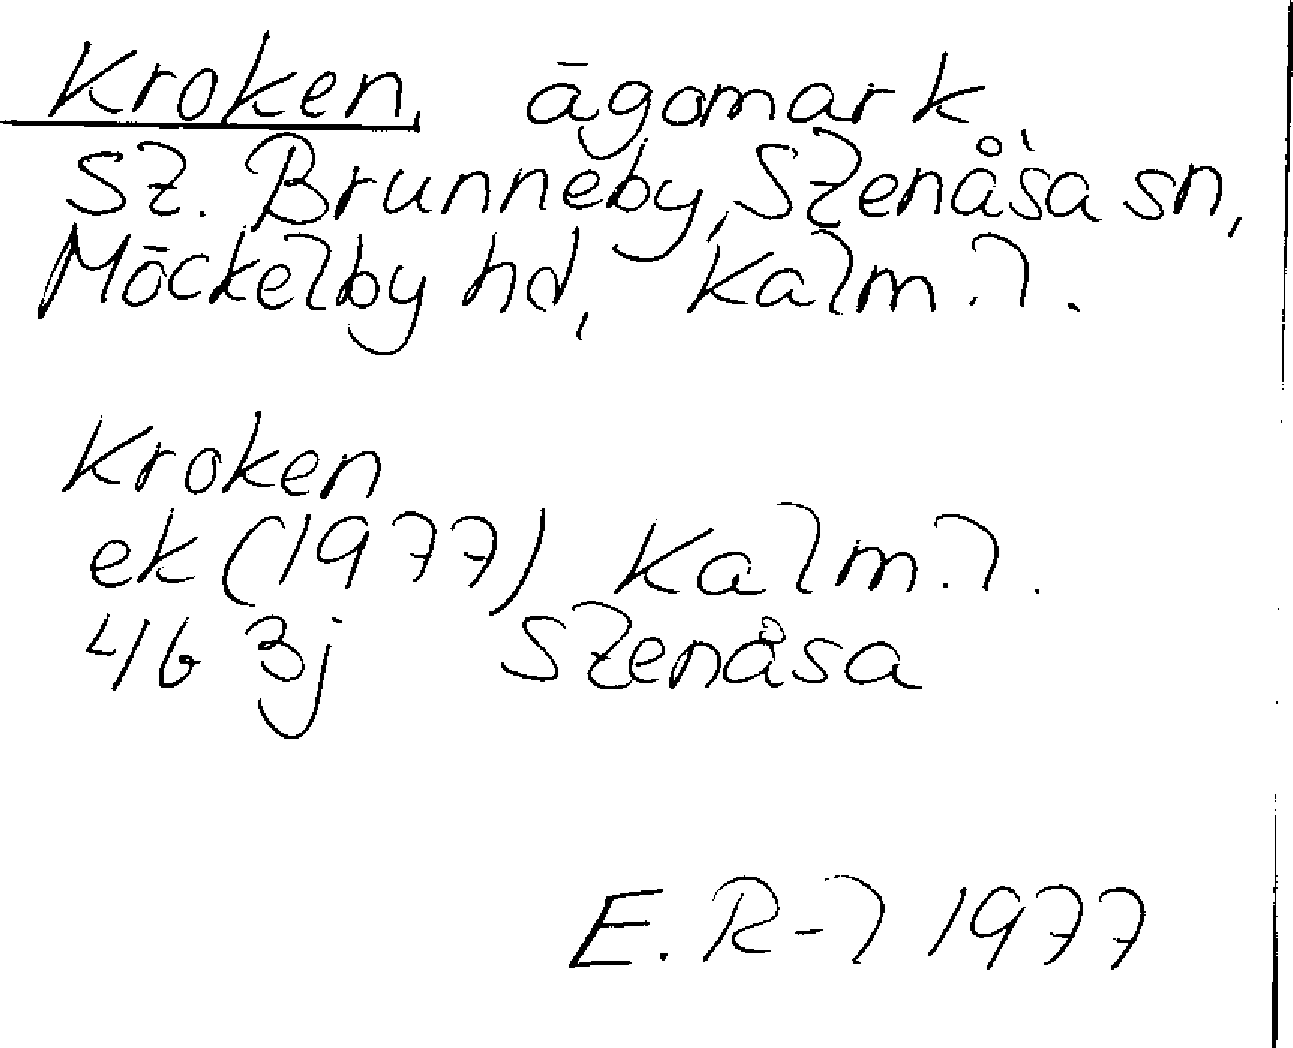 Kroken, ägomark
St. Brunneby, Stenåsa sn,
Möckelby hd, Kalm. l.
Kroken
ek (1977) Kalm. l.
4G 3j Stenåsa
E. R-l 1977